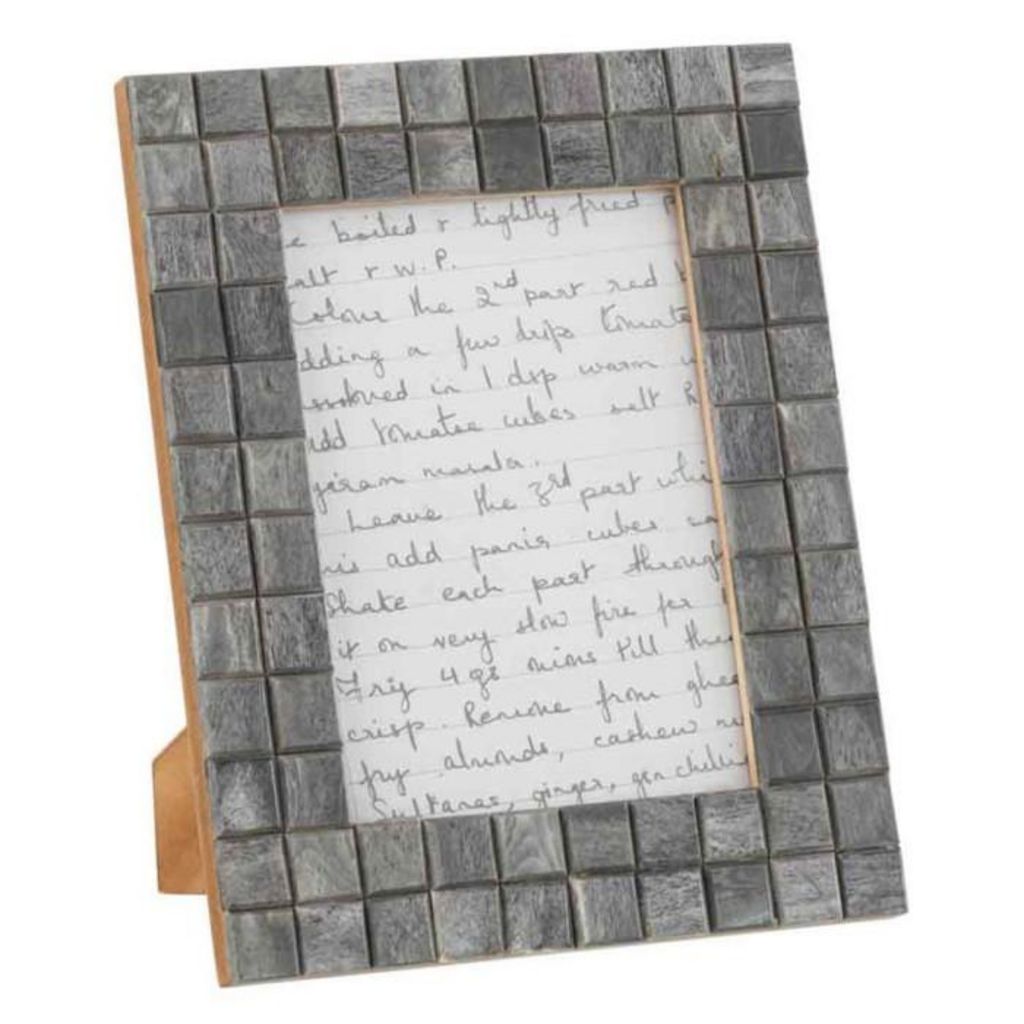 e boiled & lightly fried p
alt & W.P.
Colour the 2nd part red
dding a few drps tomato
ssolved in 1 dsp warm w
add tomatoe cubes salt
garam masala.
Leave the 3rd part whi
his add panir cubes sa
Shake each part through
it on very slow fire for
Fry 4 gs mins till the
crisp. Remove from ghee
fry almonds, cashew nu
Sultanas, ginger, grn chillie